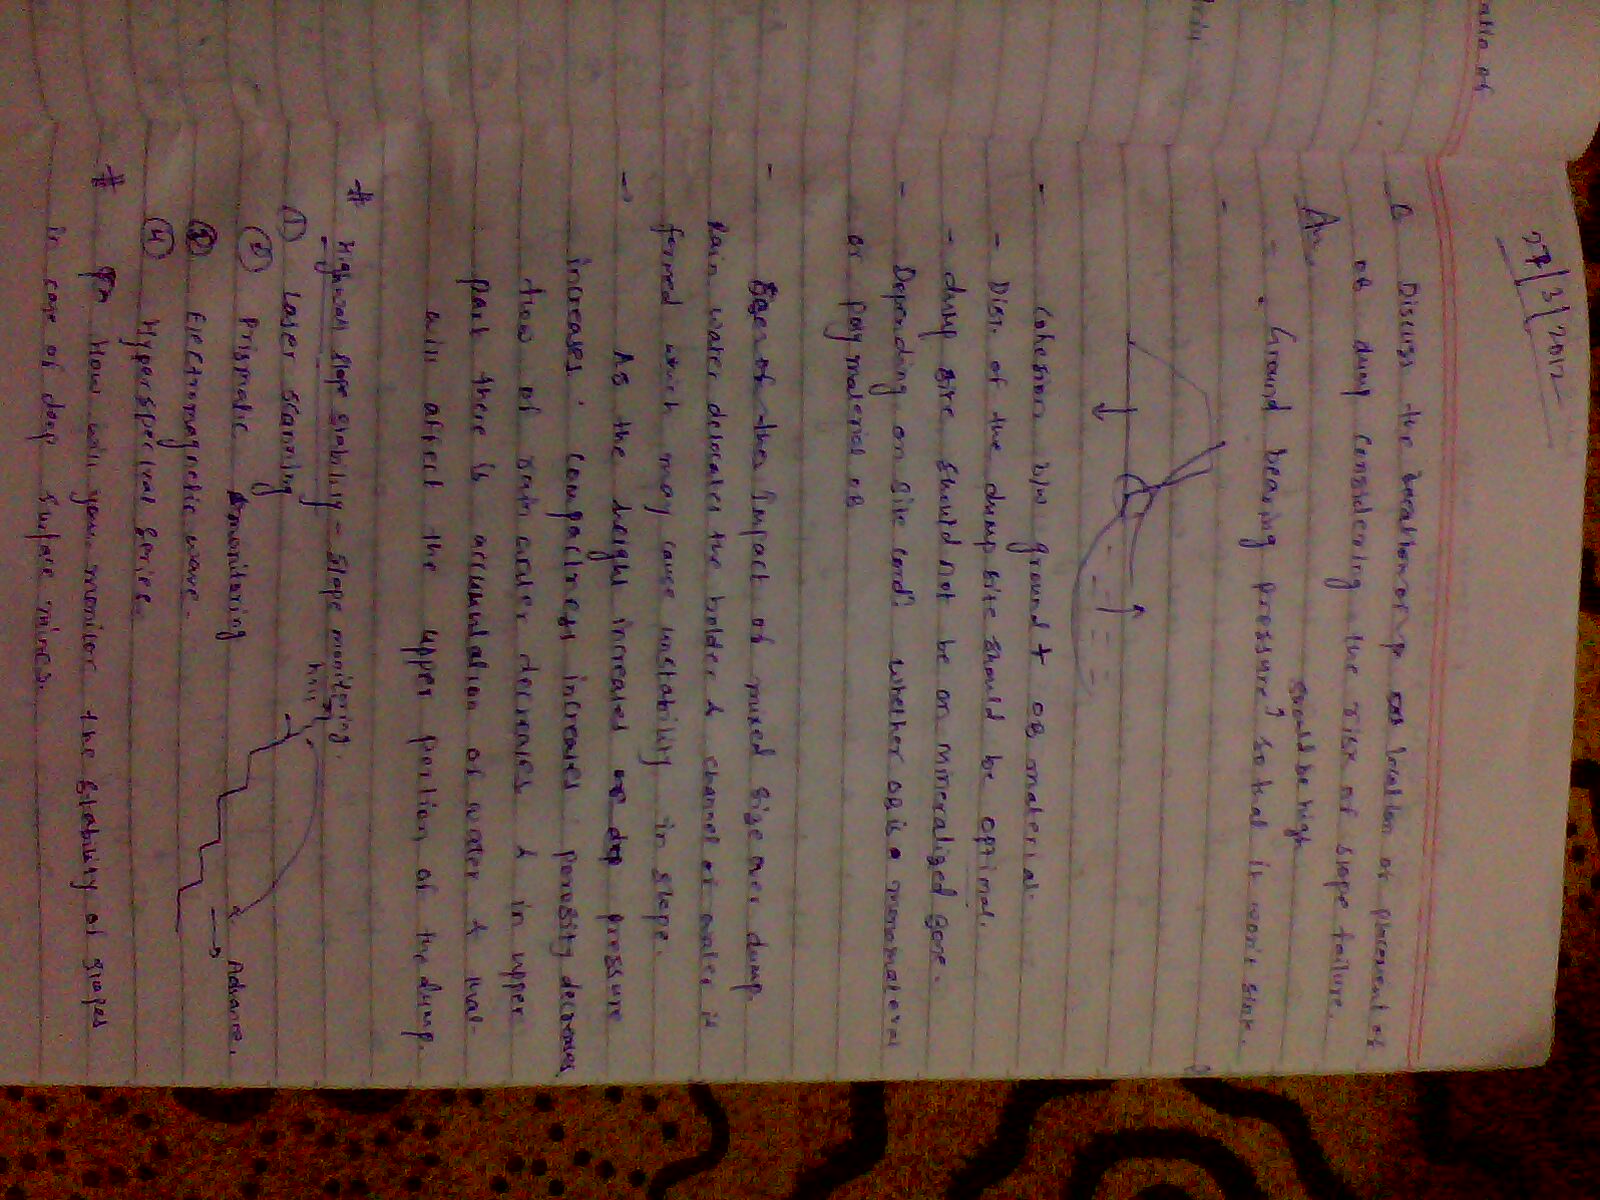 27/3/2012
Q Discuss the location or placement of
OB dump considering the risk of slope failure.
An.
should be high
- Ground bearing pressure so that it won't sink.
- Cohesion b/w ground + OB material.
- Dist. of the dump site should be optimal.
- dump site should not be on mineralized zone.
- Depending on site cond? whether OB is a monomaterial
or polymaterial OB
- Impact of mixed size over dump
Rain water deviates the bolder & channel of water is
formed which may cause unstability in slope.
→ As the height increases pressure
increases. compactness increases porosity decreases
flow of water decreases & in upper
part there is accumulation of water & that
will affect the upper portion of the dump.
# Highwall slope stability - Slope monitoring.
① Laser scanning
hill
② Prismatic monitoring
③ Electromagnetic wave.
Advance.
④ Hyperspectral Series.
# How will you monitor the stability of slopes
in case of deep surface mines.